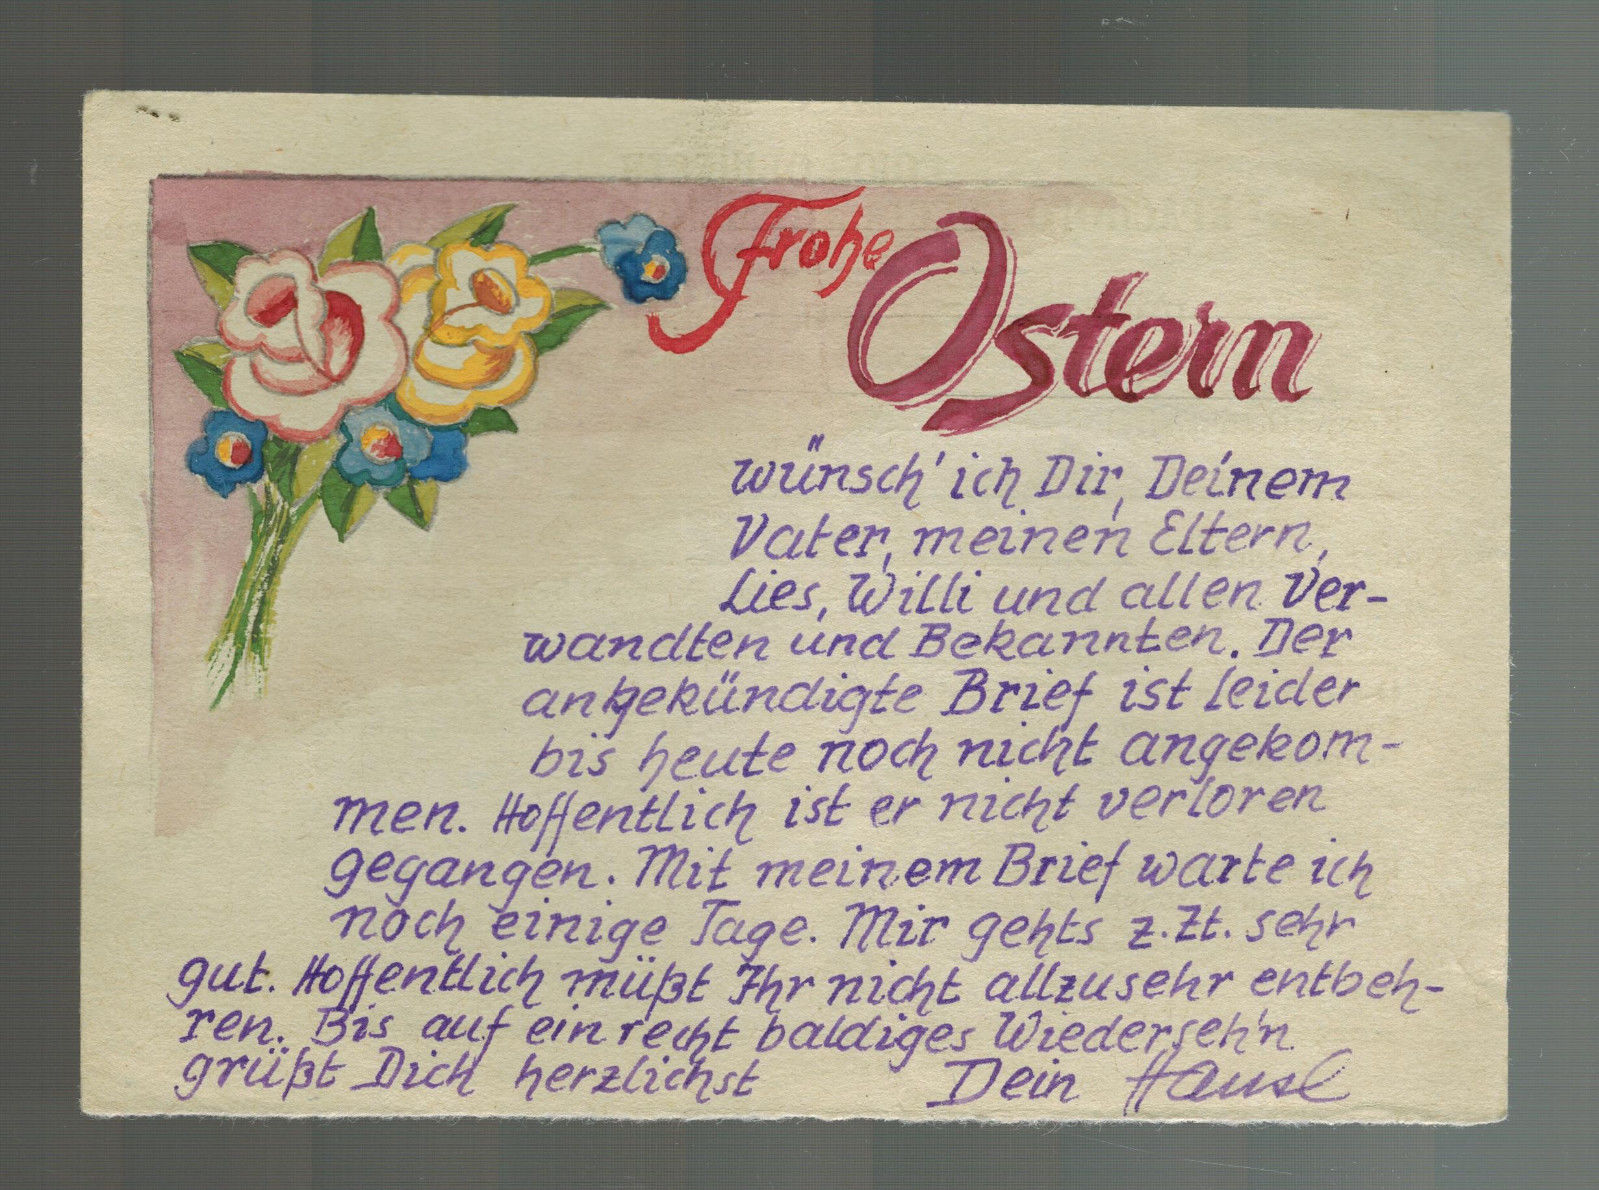 Frohe
Ostern
wünsch' ich Dir, Deinem
Vater, meinen Eltern,
Lies, Willi und allen Ver-
wandten und Bekannten. Der
angekündigte Brief ist leider
bis heute noch nicht angekom-
men. Hoffentlich ist er nicht verloren
gegangen. Mit meinem Brief warte ich
noch einige Tage. Mir gehts z.Zt. sehr
gut. Hoffentlich müßt Ihr nicht allzusehr entbeh-
ren. Bis auf ein recht baldiges Wiederseh'n
grüßt Dich herzlichst Dein Hansl